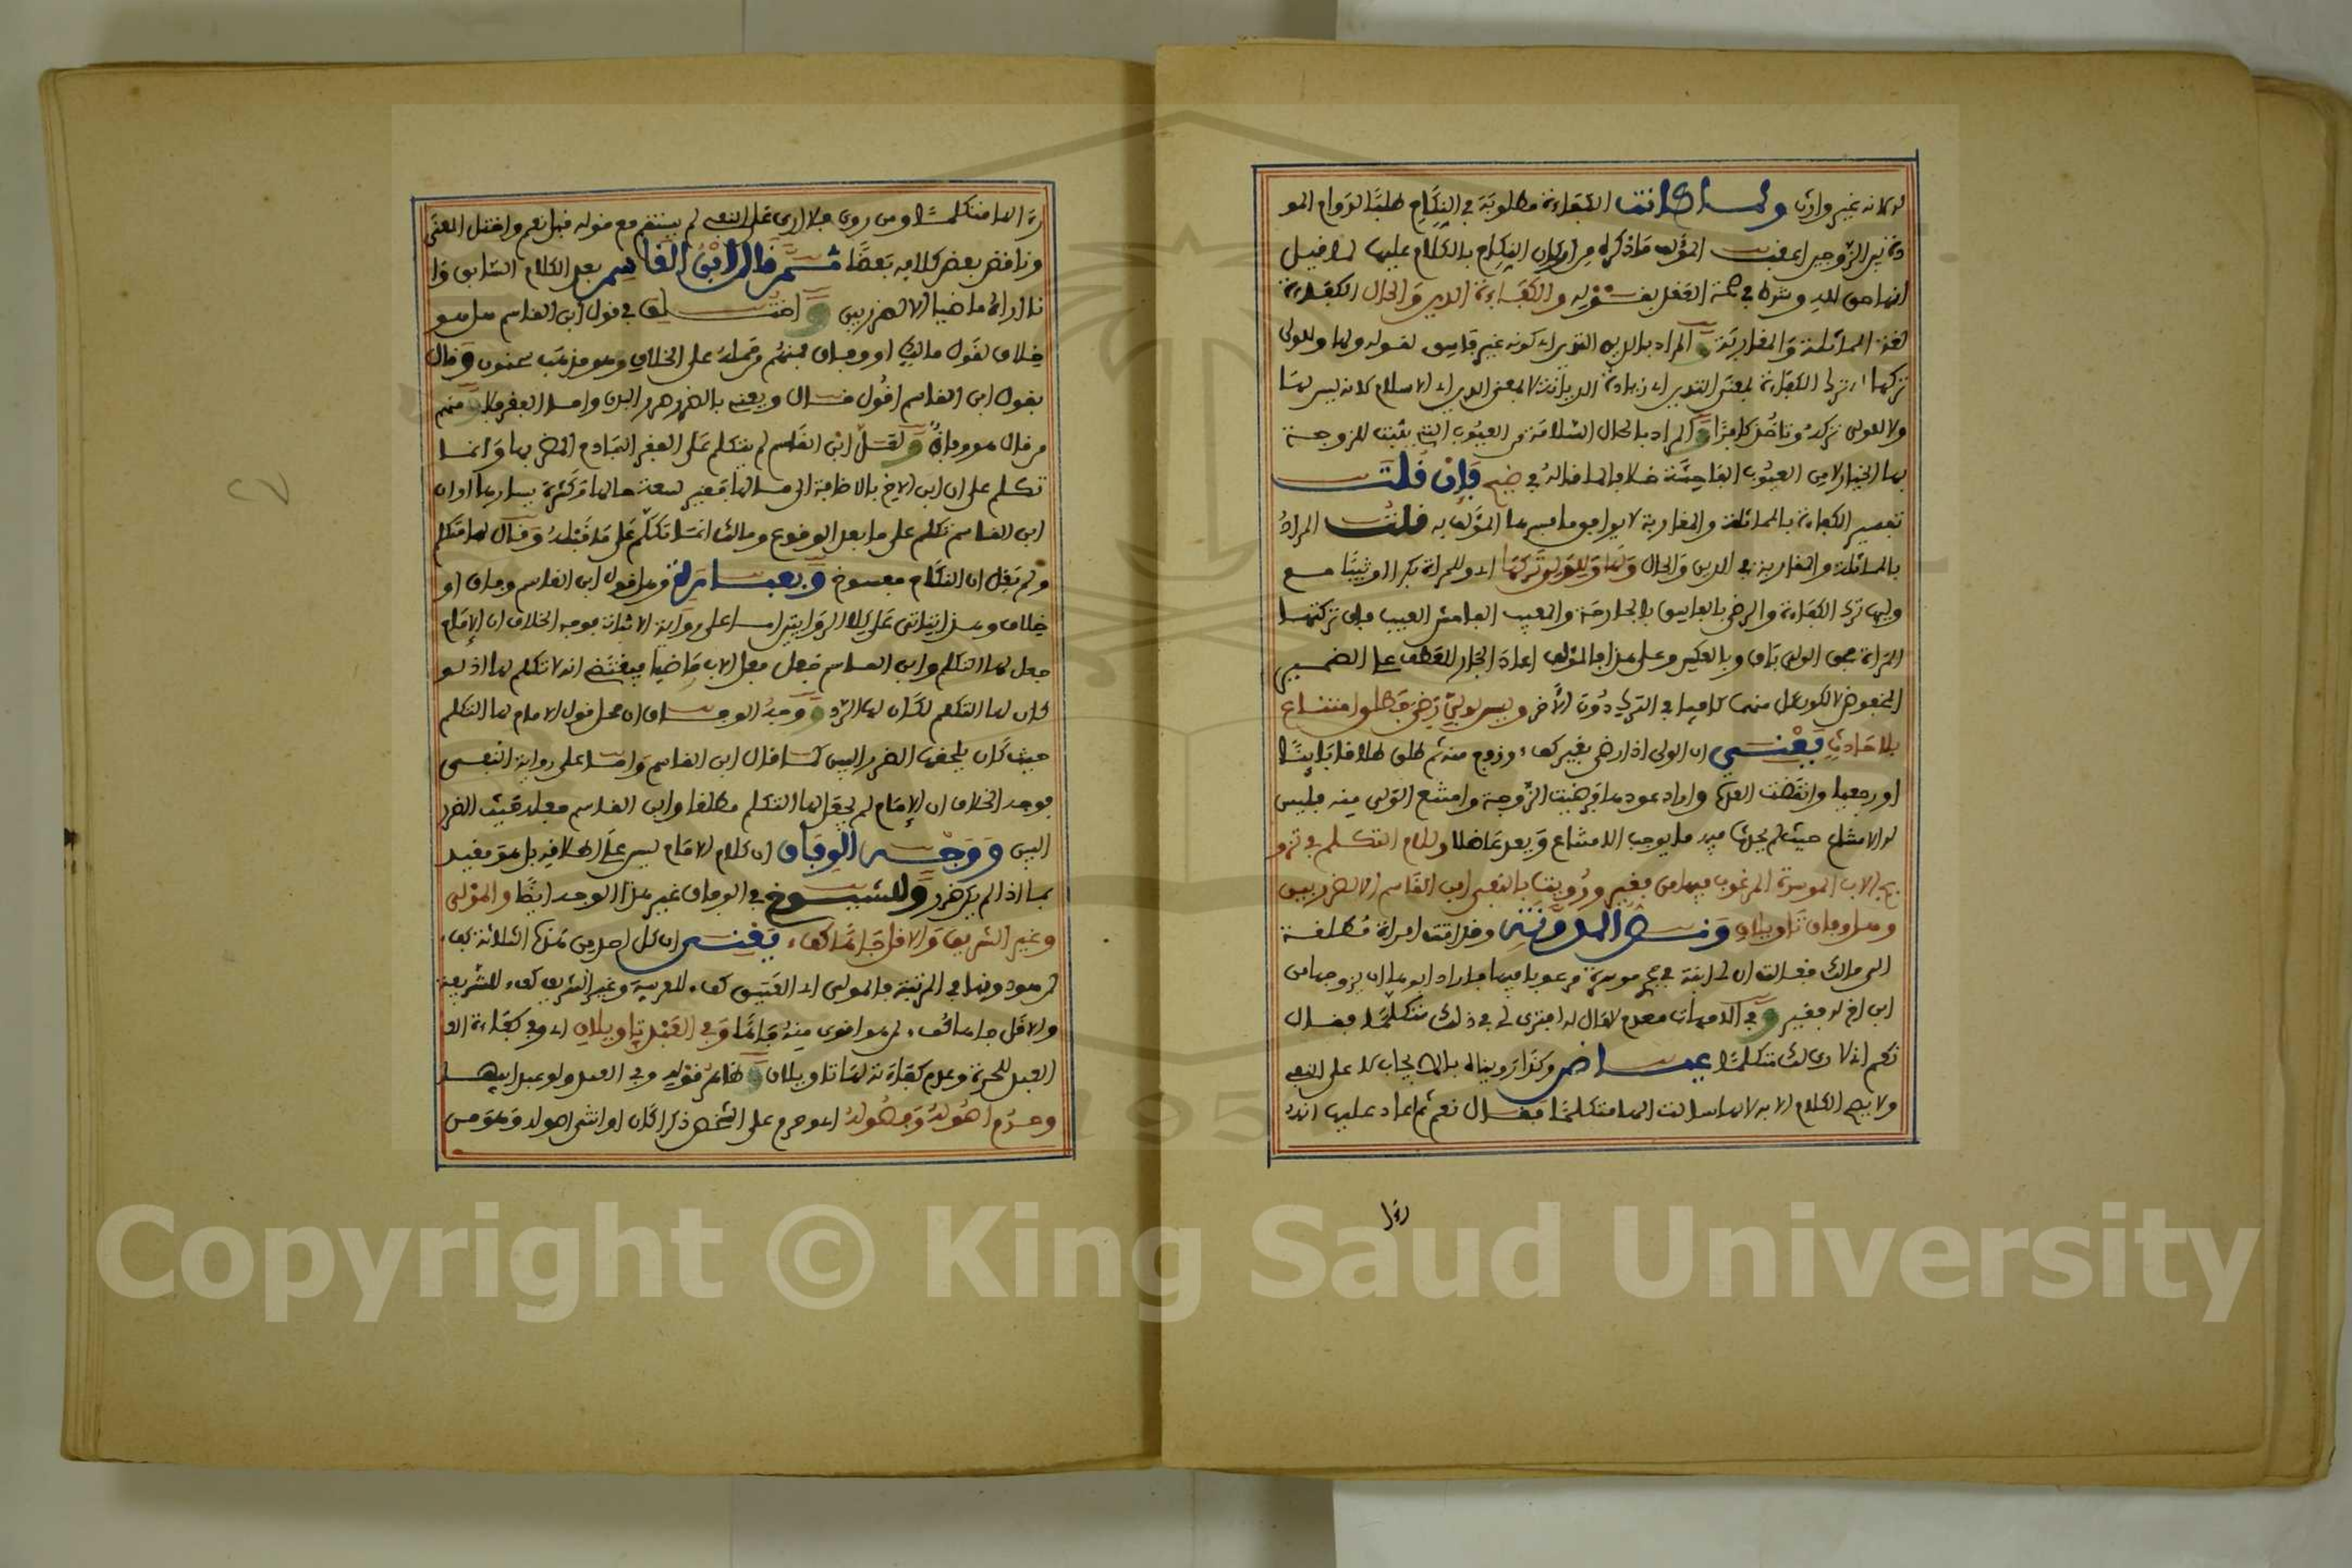 لولائه غير وارث ولما كانت الكفاءة مطلوبة في النكاح طلبا لدوام المو
دة بين الزوجين اعقب المؤلف ما ذكره من اركان النكاح بالكلام عليها لما قيل
انها حق لله وشرط في صحة العقد بقوله والكفاءة الدين والحال الكفاءة
لغة المماثلة والمقاربة و المراد بالدين التدين اي كونه غير فاسق لقوله ولها وللولي
تركها اي ترك الكفاءة بمعنى التدين اي زيادة الديانة لا بمعنى الدين اي الاسلام لانه ليس لها
ولا للولي تركه وتاخذ كافرا و المراد بالحال السلامة من العيوب التي يثبت للزوجة
بها الخيار لا من العيوب الفاحشة خلافا لما قاله في ضيح فان قلت
تفسير الكفاءة بالمماثلة والمقاربة لا يوافق ما فسرها المؤلف به قلت المراد
بالمماثلة والمقاربة في الدين والحال ولها وللولي تركها اي وللمراة بكرا او ثيبا مع
وليها ترك الكفاءة والرضى بالفاسق بالجارحة والمعيب الفاحش العيب فان تركتها
المراة فحق الولي باق وبالعكس وعلى هذا فالمؤلف اعاد الجار للعطف على الضمير
المخفوض لا لكون كل منهما كافيا في الترك دون الآخر وليس لولي رضي فطلق امتناع
بلا حادث يعني ان الولي اذا رضي بغير كفء وزوج منه ثم طلق طلاقا بائنا
او رجعيا وانقضت العدة واراد عودها فرضيت الزوجة وامتنع الولي منه فليس
له الامتناع حيث لم يحدث فيه ما يوجب الامتناع ويعد عاضلا وللام التكلم في تزو
يج الاب الموسرة المرغوب فيها من فقير ورويت بالنفي ابن القاسم الا لضرر بين
وهل وفاق تاويلان ونص المدونة وقد اتت امراة مطلقة
الى مالك فقالت ان لي ابنة في حجري موسرة مرغوبا فيها فاراد ابوها ان يزوجها من
ابن اخ له فقير وفي الامهات معدم لا مال له افترى لي في ذلك متكلما فقال
نعم اني لارى لك متكلما عياض وكذا رويناه بالايجاب لا على النفي
ولا يصح الكلام الا به لانها سالت الها متكلما فقال نعم ثم اعاد عليها انه
راى
رة الها متكلما ومن روى فلا ارى على النفي لم يستقم مع قوله قبل نعم واختل المعنى
وناقض بعض كلامه بعضا ثم قال ابن القاسم بعد الكلام السابق وا
نا اراه ماضيا الا لضرر بين و اختلف في قول ابن القاسم هل هو
خلاف لقول مالك او وفاق فمنهم من حمله على الخلاف وهو مذهب سحنون وقال
بقول ابن القاسم اقول قال ويعني بالضرر ضرر البدن واما الفقر فلا و منهم
من قال هو وفاق و لعل ابن القاسم لم يتكلم على الفقر الفادح المضر بها وانما
تكلم على ان ابن الاخ بالاضافة الى مالها فقير لسعة حالها وكثرة يسارها او ان
ابن القاسم تكلم على ما بعد الوقوع ومالك انما تكلم على ما قبله وقال لها متكلم
ولم يقل ان النكاح مفسوخ و بعبارة وهل قول ابن القاسم وفاق او
خلاف وهذا يتاتى على كلا الروايتين اما على رواية الاثبات فوجه الخلاف ان الامام
جعل لها التكلم وابن القاسم جعل فعل الاب ماضيا فيقتضي انه لا تكلم لها اذ لو
كان لها التكلم لكان لها الرد و وجه الوفاق ان محل قول الامام لها التكلم
حيث كان يلحقها الضرر البين كما قال ابن القاسم واما على رواية النفي
فوجه الخلاف ان الامام لم يجعل لها التكلم مطلقا وابن القاسم جعله حيث الضرر
البين ووجه الوفاق ان كلام الامام ليس على اطلاقه بل هو مقيد
بما اذا لم يكن ضرر وللشيوخ في الوفاق غير هذا الوجه ايضا والمولى
وغير الشريف والاقل جاها كفء يعني ان كل احد من هذه الثلاثة كفء
لمن هو دونها في المرتبة فالمولى اي العتيق كفء للعربية وغير الشريف كفء للشريفة
والاقل جاها كفء لمن هو اقوى منه جاها وفي العبد تاويلان اي وفي كفاءة العـ
العبد للحرة وعدم كفاءته لها تاويلان و ظاهر قوله وفي العبد ولو عبد ابيها
وحرم اصوله وفصوله اي وحرم على الشخص ذكرا كان او انثى اصوله وهو من
Copyright © King Saud University
1957